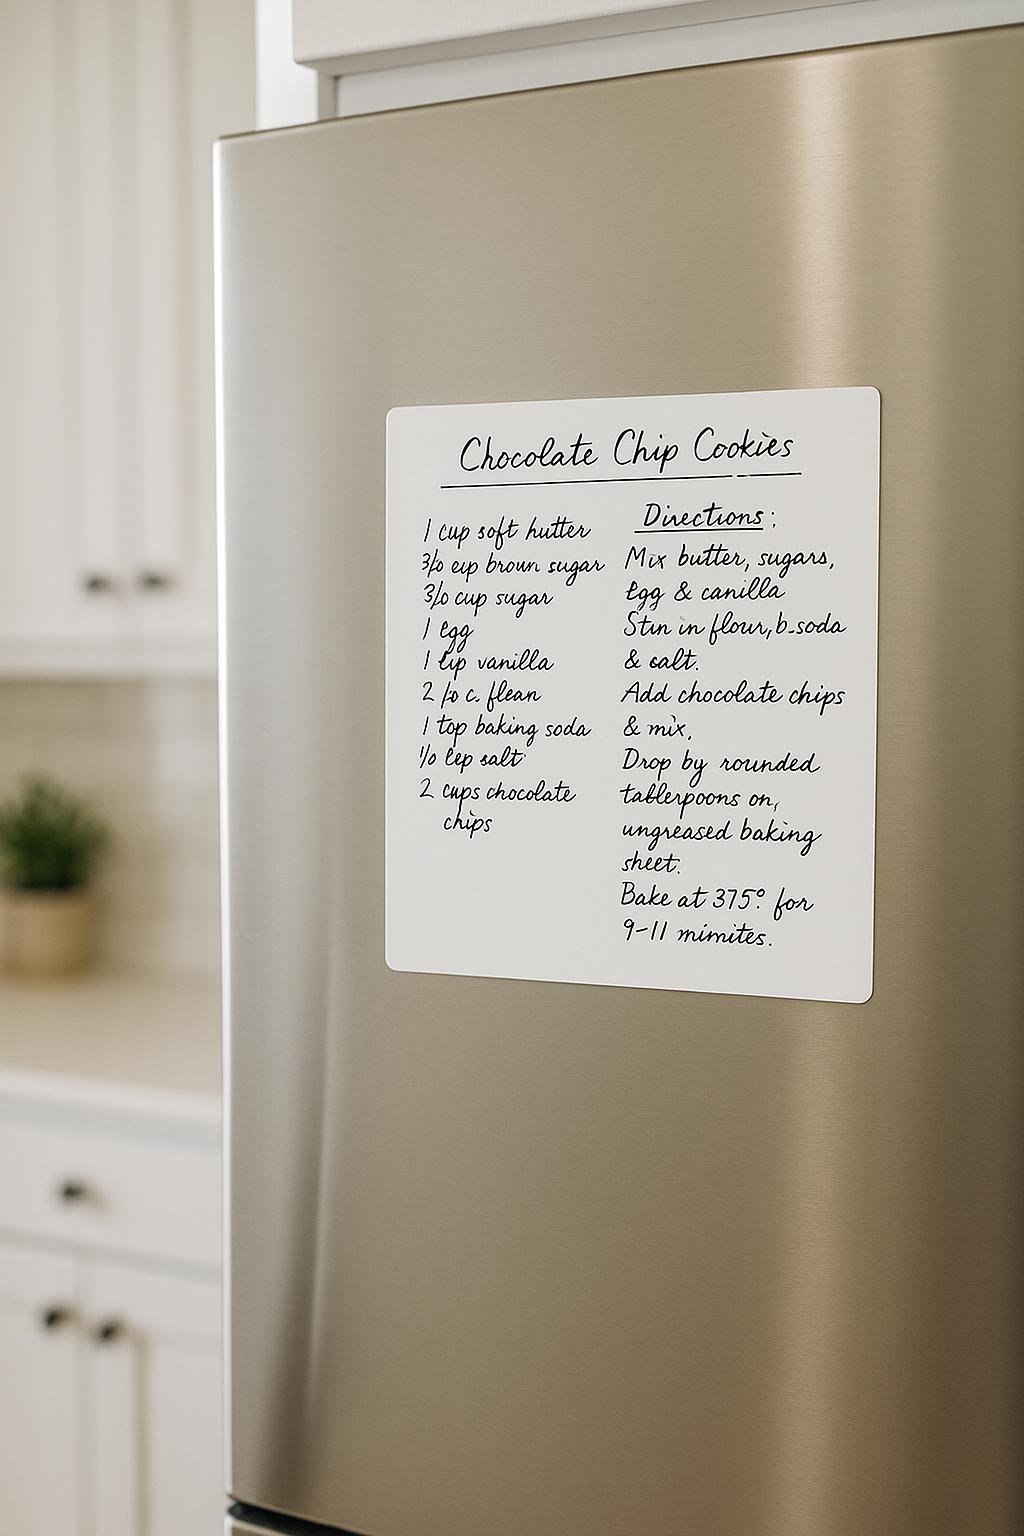 Chocolate Chip Cookies
1 cup soft hutter
3/0 eup broun sugar
3/0 cup sugar
1 egg
1 lip vanilla
2 /o c. flean
1 top baking soda
1/0 lep salt
2 cups chocolate
chips
Directions:
Mix butter, sugars,
Egg & canilla
Stin in flour, b-soda
& salt.
Add chocolate chips
& mix.
Drop by rounded
tablerpoons on,
ungreased baking
sheet.
Bake at 375° for
9-11 mimites.